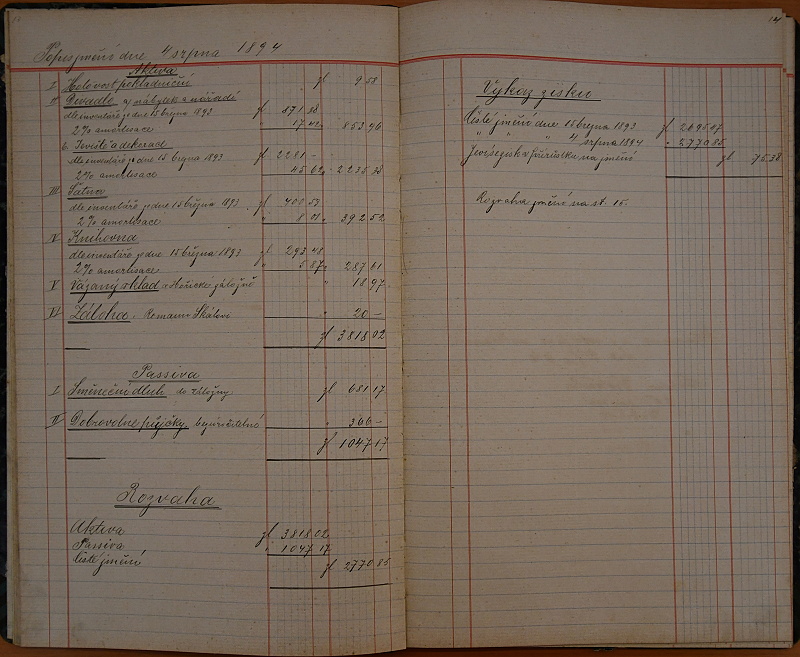 Popis jmění dne 4 srpna 1894
Aktiva
I Hotovost pokladniční zl 9 58
II Divadlo a) nábytek a nářadí
dle inventáře pr dne 15 března 1893 zl 871.88
2% amortisace " 17.42 " 853.46
b. Jeviště a dekorací
dle inventáře pr dne 15 března 1893 zl 2281 –
2% amortisace 45 62 " 2235.38
III Šatna
dle inventáře pr dne 15 března 1893 zl 400 53
2% amortisace " 8 01 " 392 52
IV Knihovna
dle inventáře pr dne 15 března 1893 zl 293.48
2% amortisace " 5 87 " 287 61
V Vázaný vklad v Hořické záložně " 18 97
VI Záloha Romanu Skálovi " 20 –
zl 3818 02
Passiva
I. Směneční dluh do záložny zl 681 17
II Dobrovolné půjčky bezúročitelné " 366 –
zl 1047 17
Rozvaha
Aktiva zl 3818.02
Passiva " 1047 17
čisté jmění zl 2770 85
14
Výkaz zisku
Čisté jmění dne 15 března 1893 zl 2695 47
" " " 4 srpna 1894 " 2770 85
zl 75.38
Rozvaha jmění na str. 15.